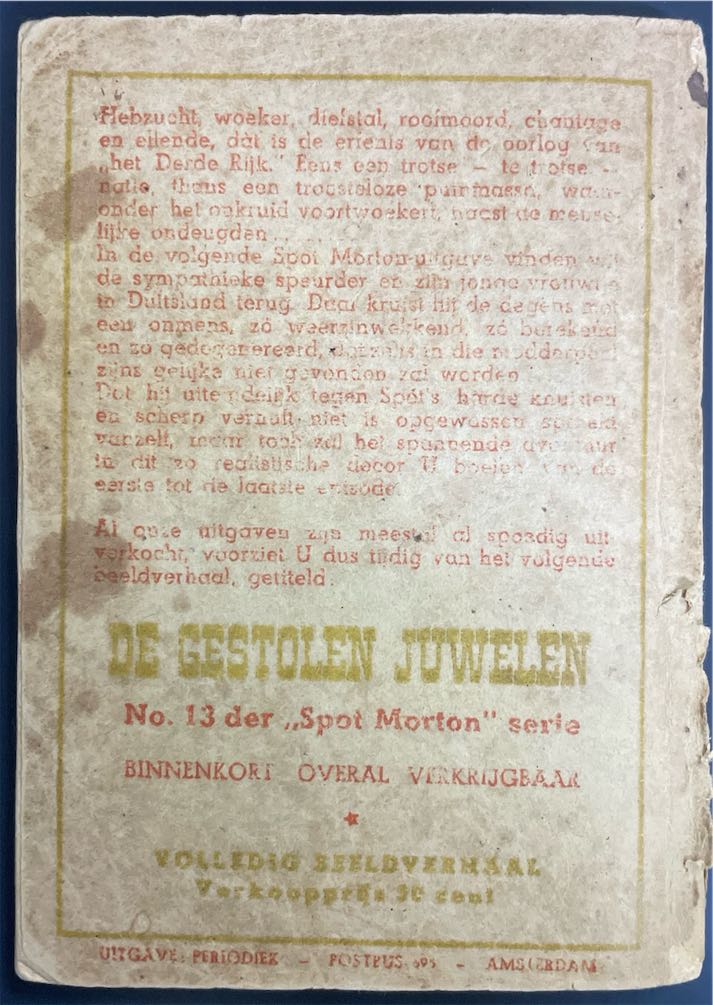 Hebzucht, woeker, diefstal, roofmoord, chantage
en ellende, dat is de erfenis van de oorlog van
„het Derde Rijk." Eens een trotse — te trotse —
natie, thans een troosteloze puinmassa, waar-
onder het onkruid voortwoekert, naast de mense-
lijke ondeugden . . . . . .
In de volgende Spot Morton-uitgave vinden wij
de sympathieke speurder en zijn jonge vrouwtje
in Duitsland terug. Daar kruist hij de degens met
een onmens, zó weerzinwekkend, zó berekend
en zo gedegenereerd, dat zelfs in die modderpoel
zijns gelijke niet gevonden zal worden.
Dat hij uiteindelijk tegen Spot's harde knuisten
en scherp vernuft niet is opgewassen spreekt
vanzelf, maar toch zal het spannende avontuur
in dit zo realistische decor U boeien van de
eerste tot de laatste episode.
Al onze uitgaven zijn meestal al spoedig uit-
verkocht, voorziet U dus tijdig van het volgende
beeldverhaal, getiteld:
DE GESTOLEN JUWELEN
No. 13 der „Spot Morton" serie
BINNENKORT OVERAL VERKRIJGBAAR
VOLLEDIG BEELDVERHAAL
Verkoopprijs cent
UITGAVE: PERIODIEK — POSTBUS 695 — AMSTERDAM